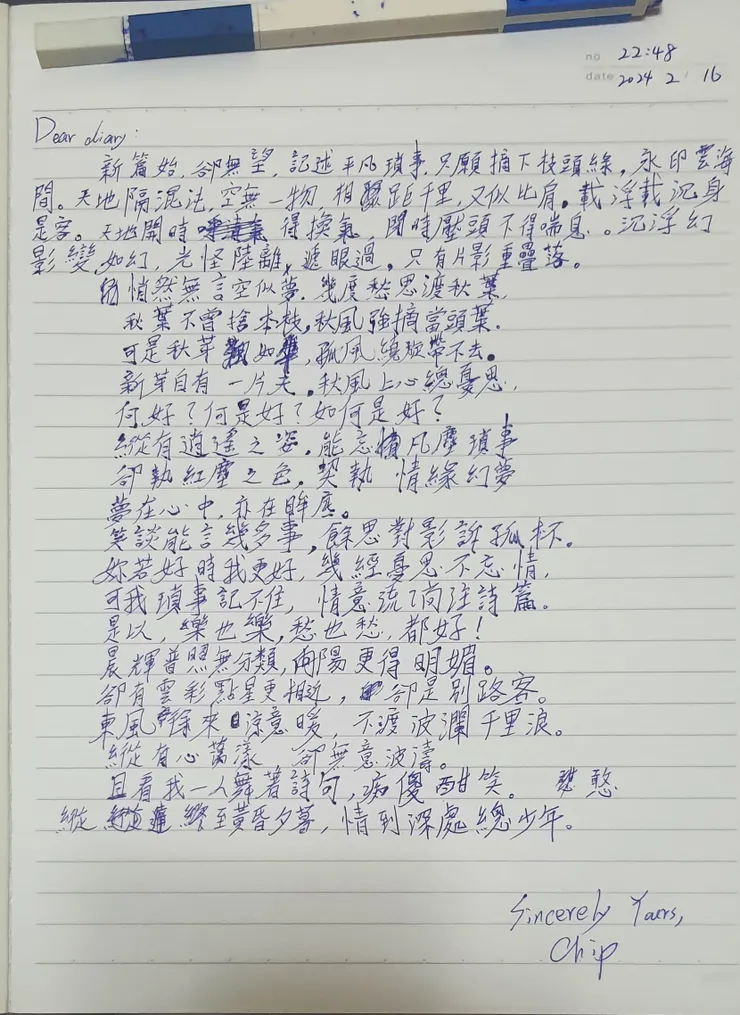 no 22:48
date 2024 2 / 16
Dear diary:
新篇始,卻無望,記述平凡瑣事,只願摘下枝頭綠,永印雲海
間。天地隔混沌,空無一物,相距千里,又似比肩。載浮載沉身
是客。天地開時 得換氣,閉時壓頭不得喘息。沉浮幻
影變如幻,光怪陸離,遞眼過。只有片影重疊落。
悄然無言空似夢,幾度愁思渡秋葉,
秋葉不曾捨本枝,秋風強摘當頭葉.
可是秋芽 如 ,孤風總旋帶不去。
新芽自有一片天.秋風上心總憂思,
何好?何是好?如何是好?
縱有逍遙之姿,能忘 凡塵瑣事
卻執紅塵之色,契執 情緣幻夢
夢在心中,亦在眸底。
笑談能言幾多事,餘思對影訴孤杯。
妳若好時我更好,幾經憂思不忘情,
可我瑣事記不住,情意流向注詩篇。
是以,樂也樂,愁也愁,都好!
晨輝普照無分類,向陽更得明媚。
卻有雲彩點星更相近,卻是別路客。
東風徐來 涼意暖,不渡波瀾千里浪。
縱有心蕩漾 卻無意波濤。
且看我一人舞著詩句,痴傻酣笑。 憨
縱 終至黃昏夕暮,情到深處總少年。
Sincerely Yours,
Chip